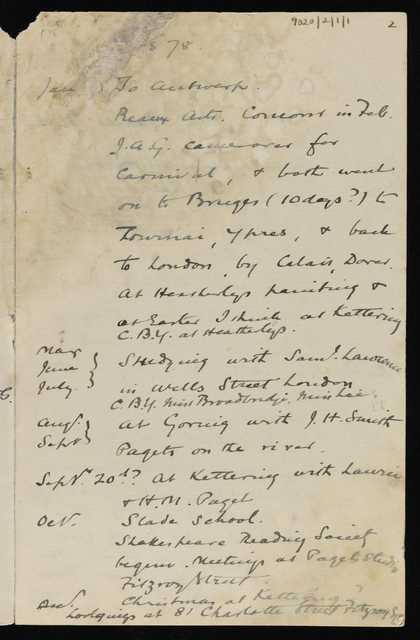 9020/2/1/1 2
78.
Jan To Antwerp.
Beaux Arts. Concours in Feb.
J.A.G. came over for
Carnival, & both went
on to Bruges (10 days?) to
Tournai, Ypres, & back
to London, by Calais, Dover.
At Heatherlys painting &
at Easter I think at Kettering
C.B.Y. at Heatherlys.
May
June } Studying with Saml. Lawrence
July } in Wells Street London
C.B.Y. Miss Broadbridge, Miss Lee.
Augt. } at Goring with J.H. Smith
Sept } Pagets on the river.
Sept. 20th? At Kettering with Laurie
& H.M. Paget
Oct. Slade School.
Shakespeare Reading Society
begun. Meetings at Pagets Studio
Fitzroy Street.
Dec. Christmas at Kettering?
Lodgings at 81 Charlotte Street Fitzroy Sq